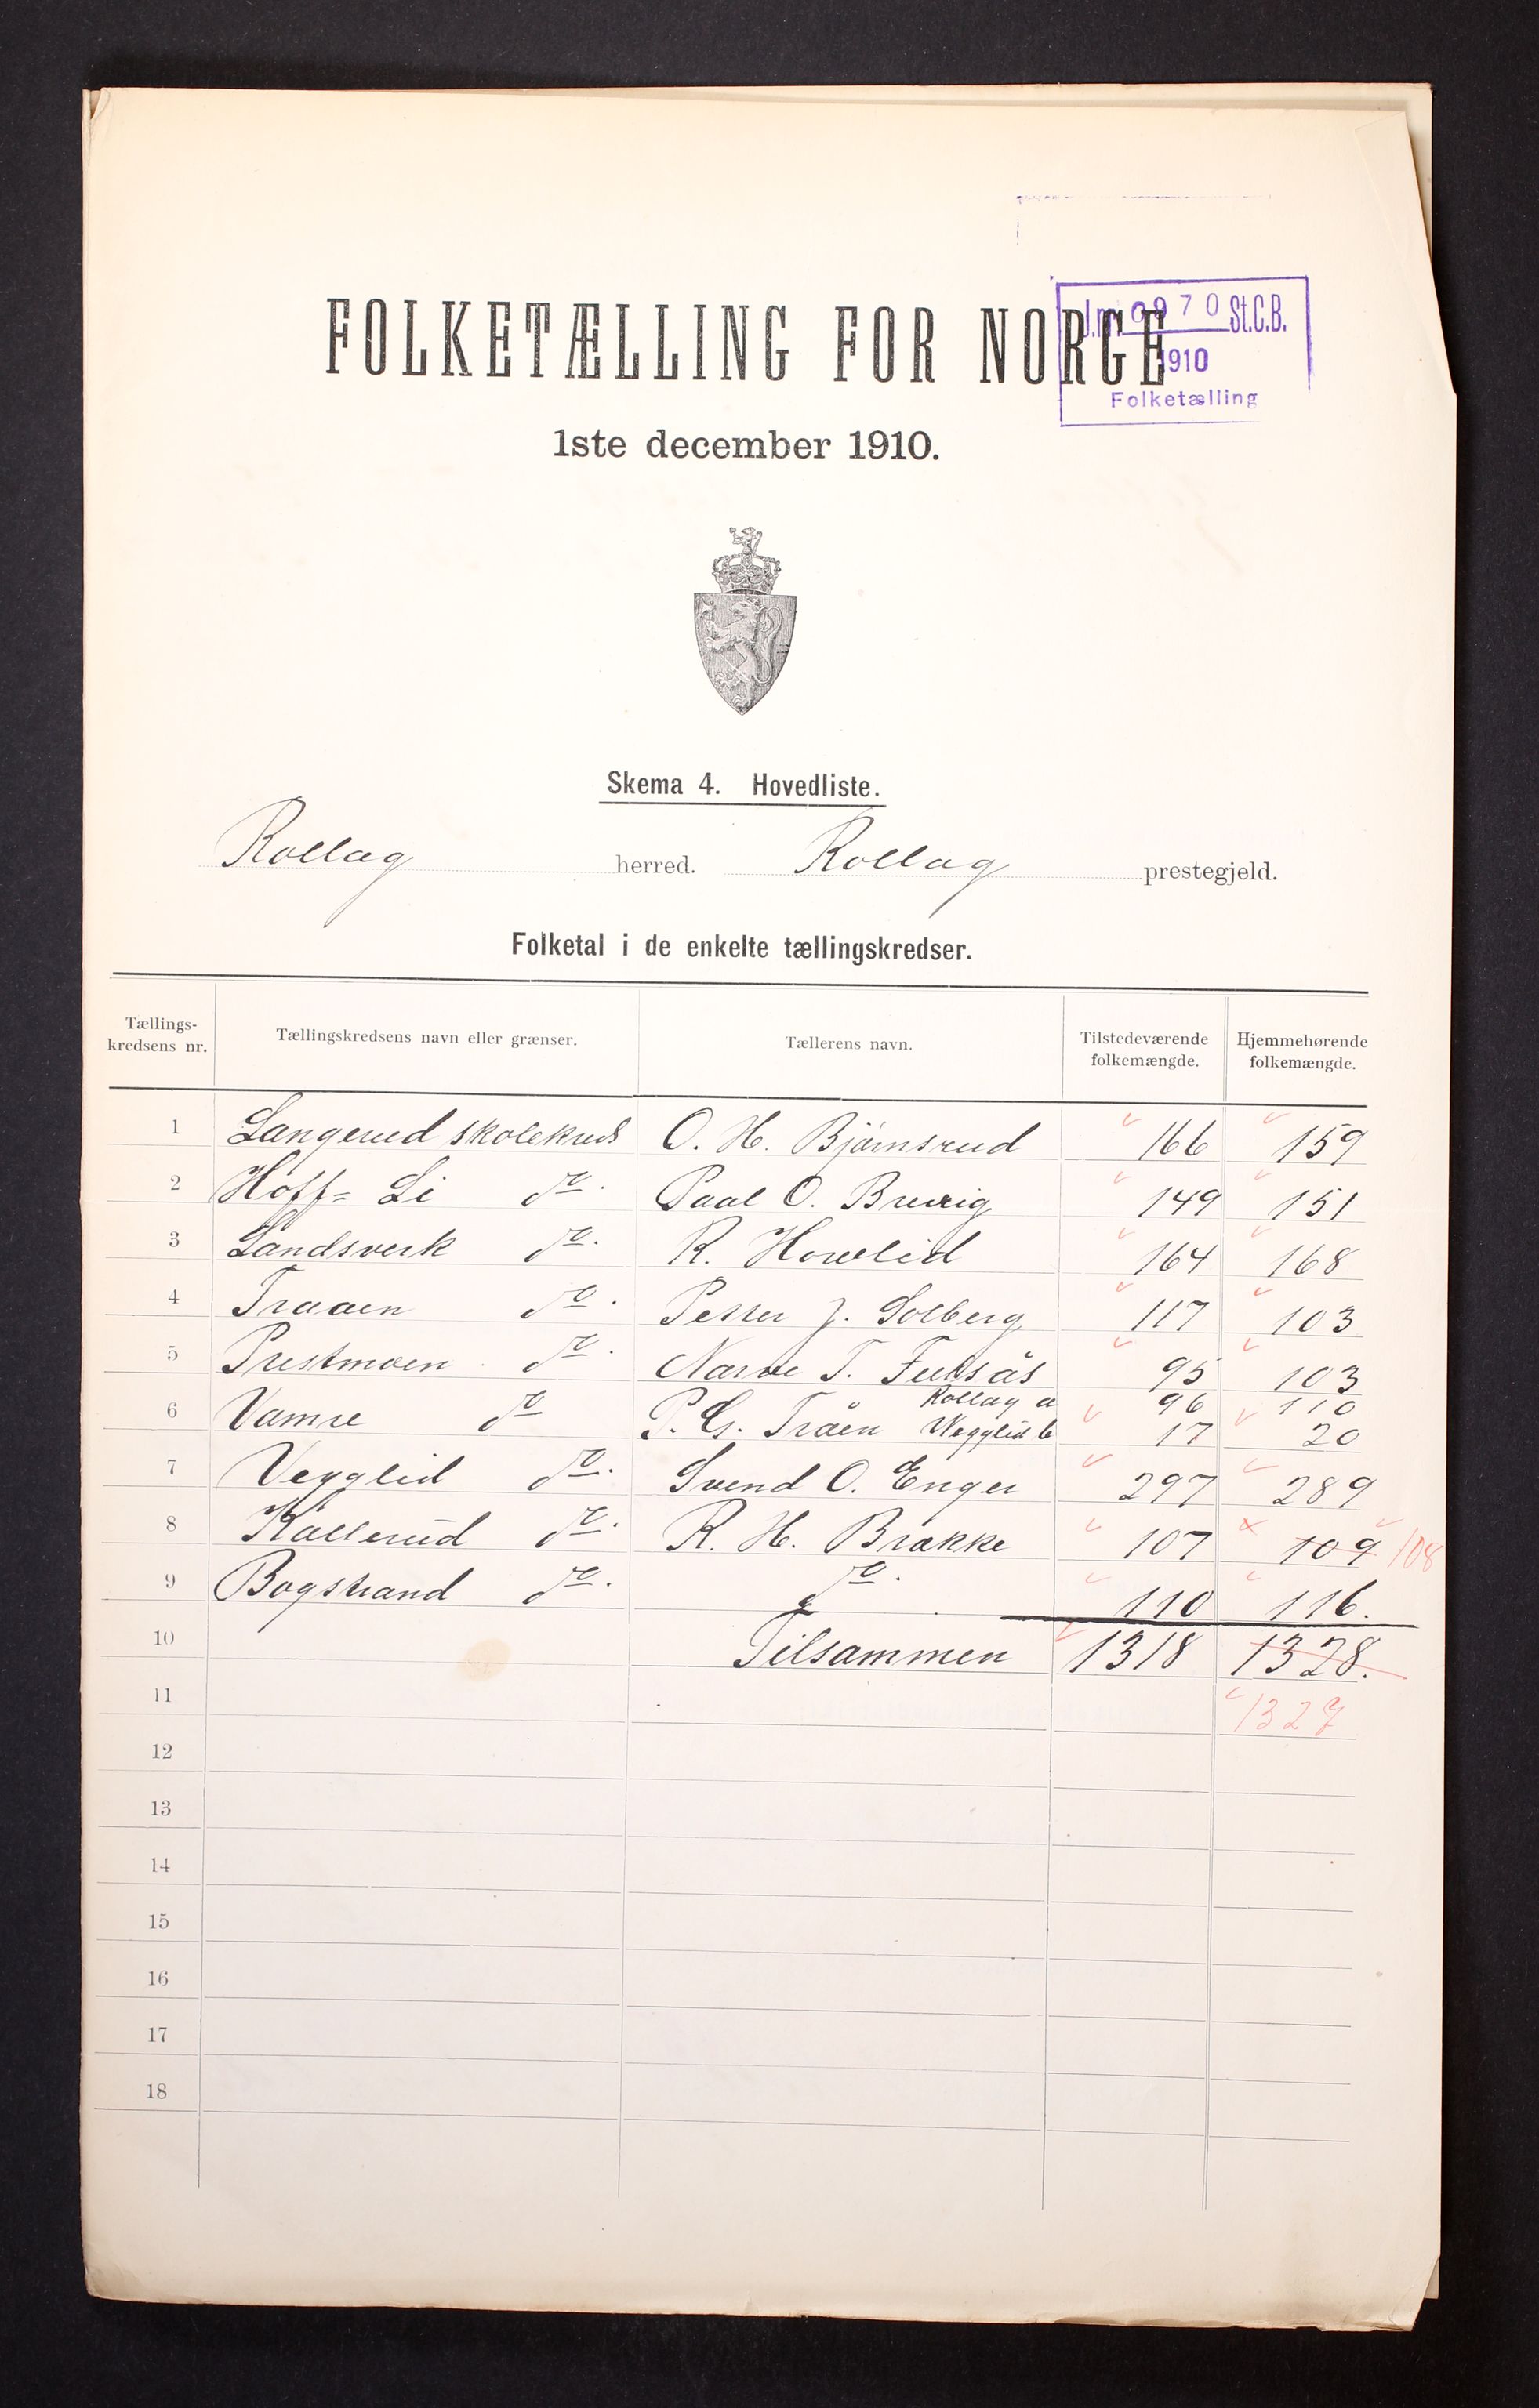 FOLKETÆLLING FOR NORGE
J.nr. 6970 St.C.B.
1910
Folketælling
1ste december 1910.
Skema 4. Hovedliste.
Rollag herred. Rollag prestegjeld.
Folketal i de enkelte tællingskredser.
Tællings-kredsens nr. Tællingskredsens navn eller grænser. Tællerens navn. Tilstedeværende folkemængde. Hjemmehørende folkemængde.
1 Langerud skolekreds O. H. Bjørnsrud 166 159
2 Hoff= Li do. Paal O. 149 151
3 Landsverk do. R. Howlid 164 168
4 Traaen do. Petter J. Solberg 117 103
5 Prestmoen do. Narve T. 95 103
6 Vamre do P. G. Tråen Rollag a 96 110
Wegglid b 17 20
7 Vegglid do. Svend O. Enger 297 289
8 Kallerud do. R. H. Brakke 107 109 108
9 Bogstrand do. do. 110 116.
10 Tilsammen 1318 1328.
11 1327
12
13
14
15
16
17
18